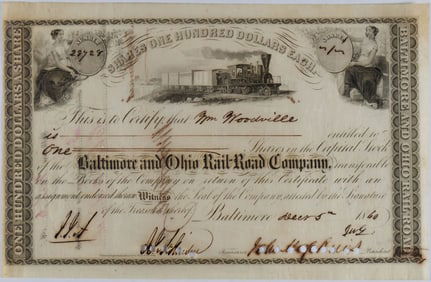 23728
SHARES ONE HUNDRED DOLLARS EACH.
ONE HUNDRED DOLLARS A SHARE
BALTIMORE AND OHIO RAILROAD
This is to Certify that Wm Woodville
is entitled to
One Shares in the Capital Stock
of the Baltimore and Ohio Rail Road Company, transferable
on the Books of the Company on return of this Certificate with an
assignment endorsed thereon Witness the Seal of the Company, attested by the Signature
of the Treasurer thereof Baltimore Decr 5th 1860